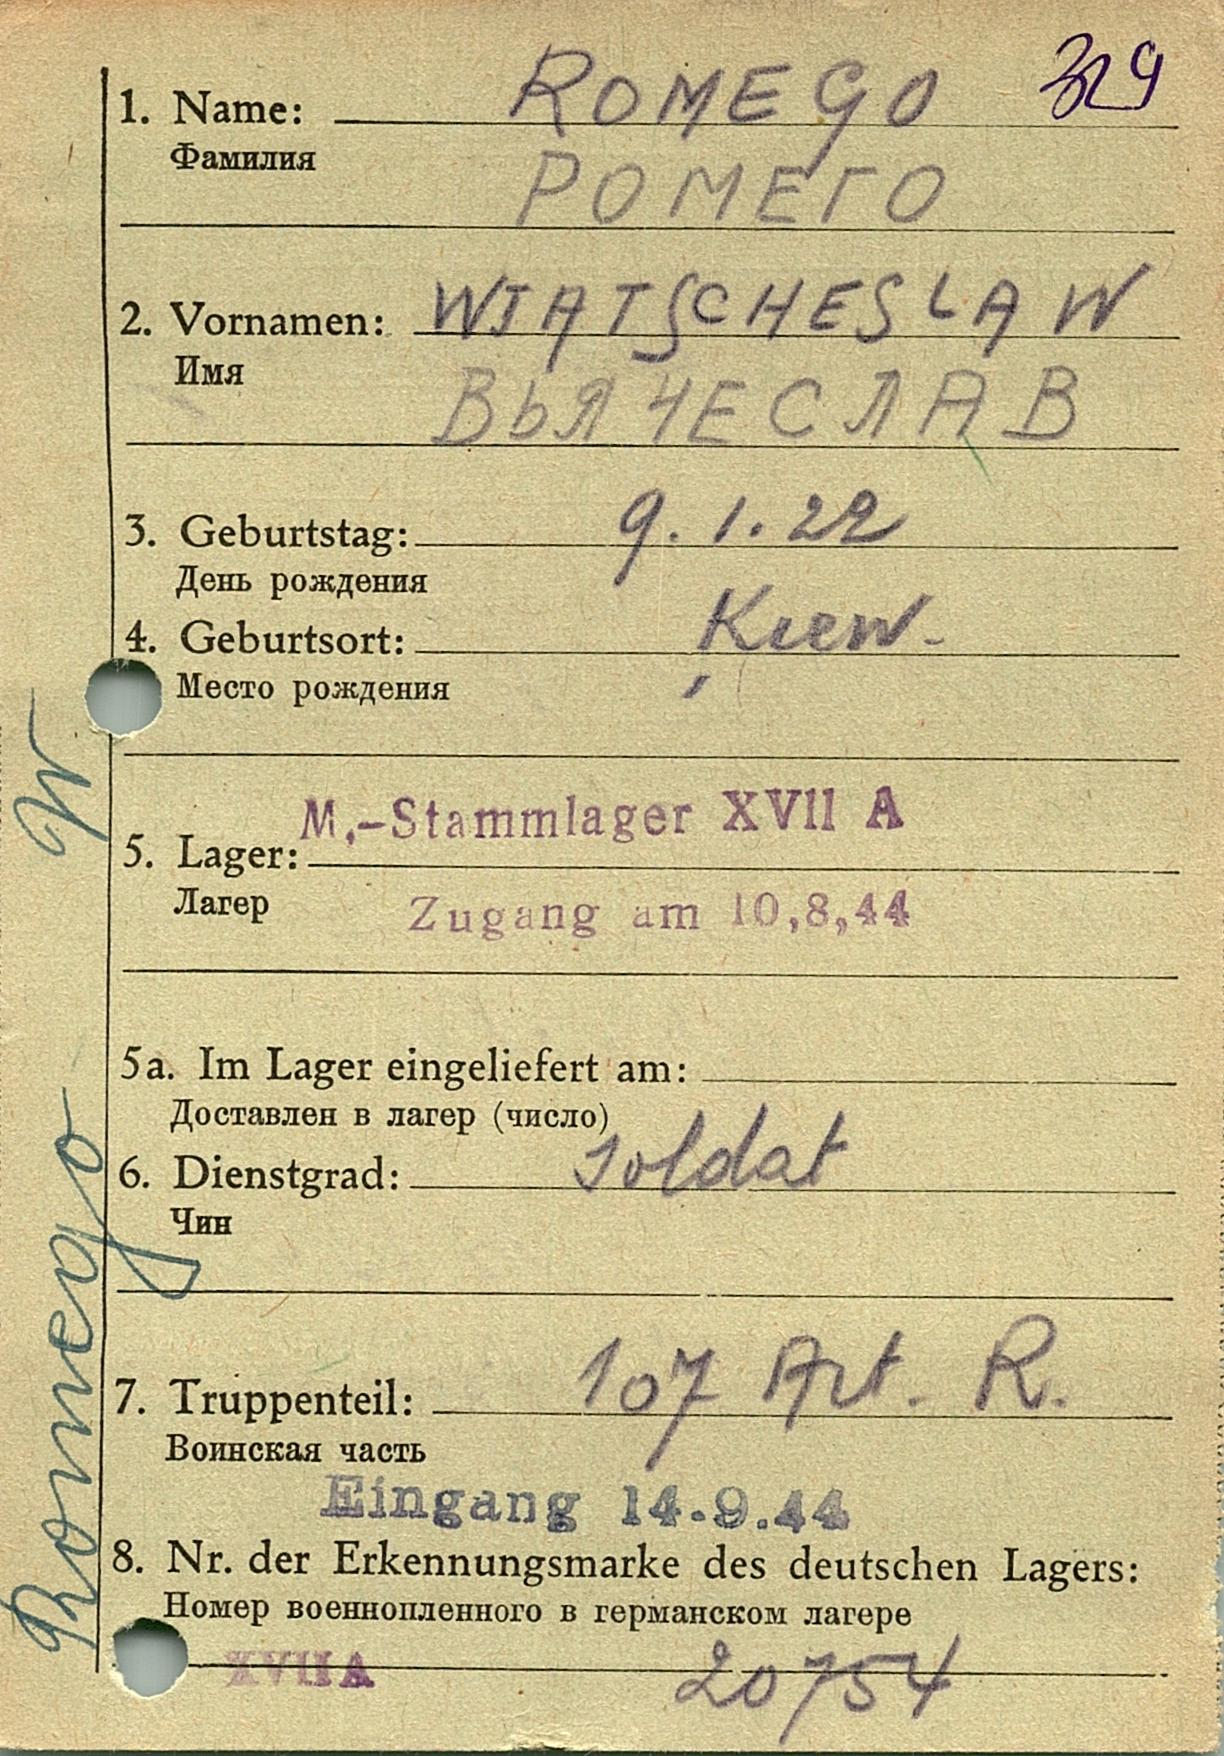 329
1. Name: ROMEGO
Фамилия РОМЕГО
2. Vornamen: WJATSCHESLAW
Имя ВЬЯЧЕСЛАВ
3. Geburtstag: 9.1.22
День рождения
4. Geburtsort: Kiew.
Место рождения
M.-Stammlager XVII A
5. Lager:
Лагер Zugang am 10,8,44
5a. Im Lager eingeliefert am:
Доставлен в лагер (число)
6. Dienstgrad: soldat
Чин
7. Truppenteil: 107 Art. R.
Воинская часть
Eingang 14.9.44
8. Nr. der Erkennungsmarke des deutschen Lagers:
Номер военнопленного в германском лагере
XVII A 20754
Romego W